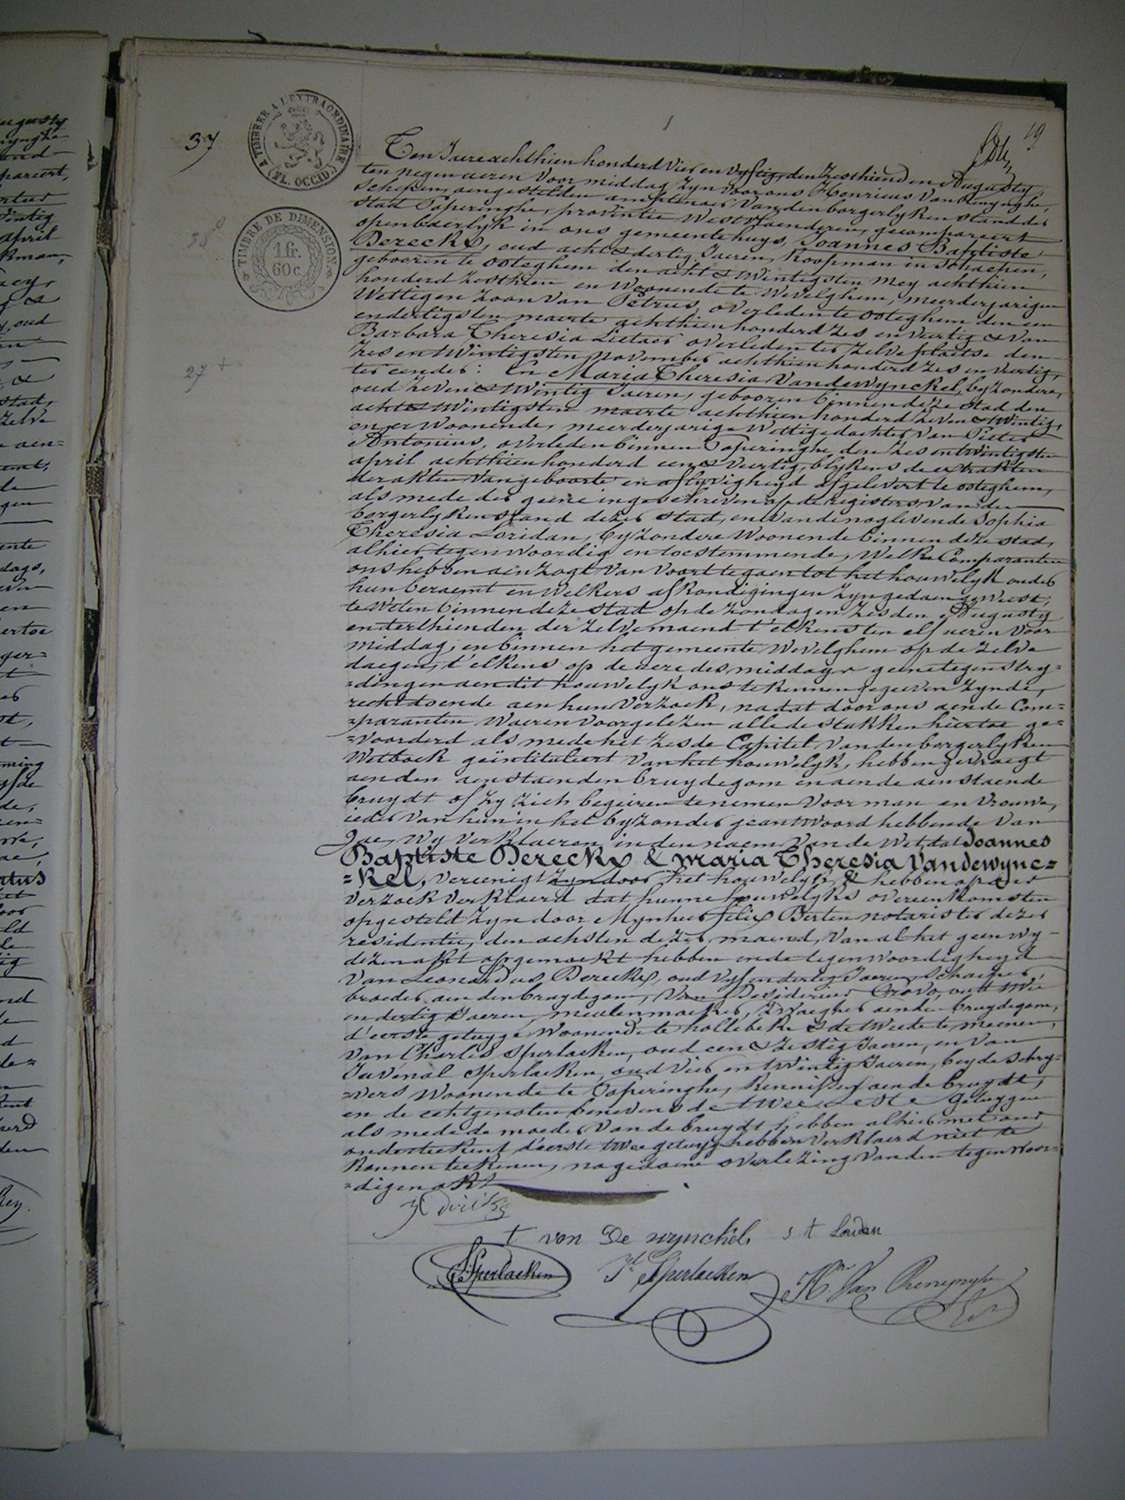 37
A TIMBRER A L'EXTRAORDINAIRE
(FL. OCCID.)
TIMBRE DE DIMENSION
1 fr.
60c.
38
27 +
19
Ten Jaere achthien honderd Vier en Vyftig, den Zesthienden Augusty,
ten negen uren Voor middag, Zyn voor ons Henricus Van Renynghe,
Schepen, aengestelden amptenaer Vanden borgerlyken stand der
stad Poperinghe, provintie Westvlaenderen, gecompareert
openbaerlyk in ons gemeentehuys, Joannes Baptiste
Dereckx, oud acht & dertig Jaeren, Koopman in Schaepen,
gebooren te Ooteghem den acht & twintigsten Mey achthien
honderd Zesthien en Woonende te Wevelghem, meerderjarigen
Wettigen Zoon van Petrus, overleden te Ooteghem den een
endertigsten maerte achthien honderd Zes en Veertig & Van
Barbara Theresia Lietaer overleden ter Zelve plaetse den
Zes en twintigsten November achthien honderd Zes en Veertig,
ter eender: En Maria Theresia Vandewynckel, byzondere,
oud Zeven & twintig Jaeren, gebooren binnen deze Stad den
acht & twintigsten maerte achthien honderd Zeven & twintig,
en er Woonende, meerderjarige Wettige dochter Van Pieter
Antonius, overleden binnen Poperinghe, den Zes en twintigsten
april achthien honderd een & Veertig, blykens de extrakten
der akten Van geboorte en aflyvigheyd afgelevert te Ooteghem,
als mede der geene ingeschreven op de registers van den
borgerlyken stand dezer stad, en Van de nog levende Sophia
Theresia Loridan, byzondere Woonende binnen deze stad,
alhier tegenwoordig en toestemmende, Welke Comparanten
ons hebben aenzogt Van Voort te gaen tot het houwelyk onder
hun beraemt en Welkers afkondigingen Zyn gedaen geweest,
te Weten binnen deze stad op de Zondagen Zesden Augusty
en derthienden der Zelve maend t'elkens ten elf uren Voor
middag, en binnen het gemeente Wevelghem op de Zelve
dagen, t'elkens op de ure des middags geene tegenstry-
=dingen aen dit houwelyk ons te kennen gegeven Zynde,
rechtdoende aen hun Verzoek, nadat door ons aen de Com-
=paranten Waeren Voorgelezen alle de stukken hiertoe ge-
=Voorderd als mede het Zesde Capitel Van den borgerlyken
Wetboek geïntituleert Van het houwelyk, hebben gevraegt
aen den aenstaenden bruydegom en aen de aenstaende
bruydt of Zy Zich begeiren te nemen Voor man en Vrouwe,
ieder Van hun in het byzonder geantwoord hebbende Van
Jae, Wy Verklaeren in den naem Van de Wet, dat Joannes
Baptiste Dereckx & Maria Theresia Vandewync-
=kel, Vereenigt Zyn door het houwelyk, & hebben op onze
Verzoek Verklaerd dat hunne houwelyks overeenkomsten
opgesteld Zyn door Mynheer Felix Berten notaris ter dezer
residentie, den achsten dezer maend, Van al het geen Wy
dezen akt opgemaekt hebben in de tegenwoordigheyd
Van Leonardus Dereckx, oud Vyf en dertig Jaeren, Schaeper,
broeder aen den bruydegom, Van Desiderius Trovo, oud drie
en dertig Jaeren, meulenmaeker, Zwaeger aen de bruydegom,
d'eerste getuyge Woonende te hollebeke & de tweede te meenen,
Van Charles Sperlaeken, oud een & Zestig Jaeren, en Van
Juvenal Sperlaeken, oud Vier en twintig Jaeren, beyde schry-
=vers Woonende te Poperinghe, Kennissen aen de bruydt,
en de echtgenoten beneven de twee leste getuygen
als mede de moeder Van de bruydt hebben alhier met ons
onderteekent, d'eerste twee getuyge hebben Verklaerd niet te
Konnen teekenen, na gedaene overlezing Van den tegenwoor-
=digen akt.
t van De wynckel s t Loridan
C. Sperlaeken Jl Sperlaeken Hri Van Renynghe